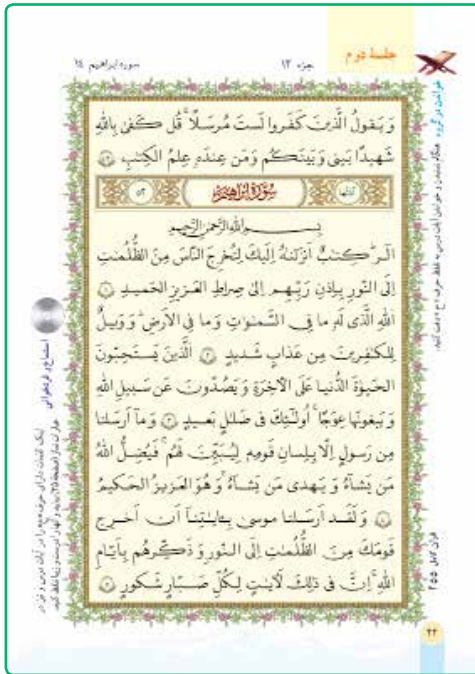 جلسهٔ دوم
جزء ۱۳
سوره ابراهیم ۱٤
وَ يَقولُ الَّذينَ كَفَروا لَستَ مُرسَلًا ۚ قُل كَفىٰ بِاللّٰهِ
شَهيدًا بَيني وَ بَينَكُم وَ مَن عِندَهٗ عِلمُ الكِتٰبِ ﴿٤٣﴾
آیاتها
سُورَةُ اِبراهیم
٥٢
بِسمِ اللّٰهِ الرَّحمٰنِ الرَّحيمِ
الٓرٰ ۚ كِتٰبٌ اَنزَلنٰهُ اِلَيكَ لِتُخرِجَ النّاسَ مِنَ الظُّلُمٰتِ
اِلَى النّورِ بِاِذنِ رَبِّهِم اِلىٰ صِراطِ العَزيزِ الحَميدِ ﴿١﴾
اَللّٰهِ الَّذي لَهٗ ما فِي السَّمٰوٰتِ وَ ما فِي الاَرضِ ۗ وَ وَيلٌ
لِلكٰفِرينَ مِن عَذابٍ شَديدٍ ﴿٢﴾ اَلَّذينَ يَستَحِبّونَ
الحَيوٰةَ الدُّنيا عَلَى الآخِرَةِ وَ يَصُدّونَ عَن سَبيلِ اللّٰهِ
وَ يَبغونَها عِوَجًا ۚ اُولٰئِكَ في ضَلٰلٍ بَعيدٍ ﴿٣﴾ وَ ما اَرسَلنا
مِن رَسولٍ اِلّا بِلِسانِ قَومِهٖ لِيُبَيِّنَ لَهُم ۖ فَيُضِلُّ اللّٰهُ
مَن يَشآءُ وَ يَهدي مَن يَشآءُ ۚ وَ هُوَ العَزيزُ الحَكيمُ
﴿٤﴾ وَ لَقَد اَرسَلنا موسىٰ بِـٔايٰتِنآ اَن اَخرِج
قَومَكَ مِنَ الظُّلُمٰتِ اِلَى النّورِ وَ ذَكِّرهُم بِاَيّٰمِ
اللّٰهِ ۚ اِنَّ في ذٰلِكَ لَآيٰتٍ لِكُلِّ صَبّارٍ شَكورٍ ﴿٥﴾
خواندن در گروه
استماع و فراخوانی
قرآن کامل ۲۵۵
۲۲